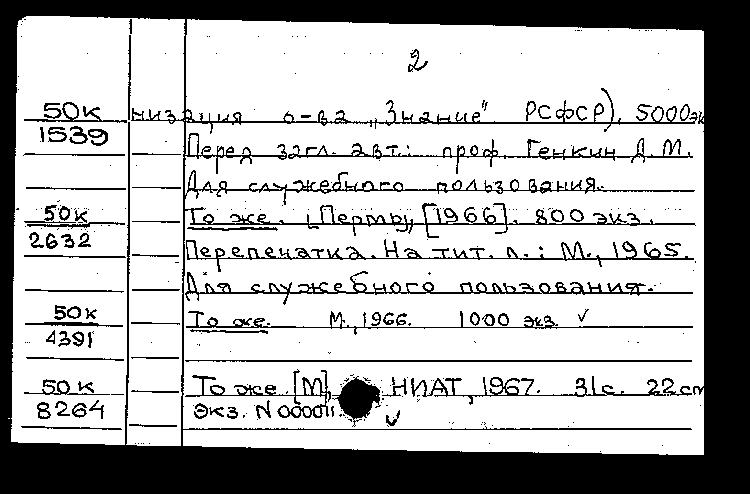 2
50к низация о-ва „Знание" РСФСР), 5000 эк
1539
Перед загл. авт.: проф. Генкин Д. М.
Для служебного пользования.
50к То же. [Пермь], [1966]. 800 экз.
2632
Перепечатка. На тит. л.: М., 1965.
Для служебного пользования.
50к То же. М., 1966. 1000 экз. ✓
4391
50к То же. [М], НИАТ, 1967. 31с. 22 см
8264 Экз. N 000011. ✓